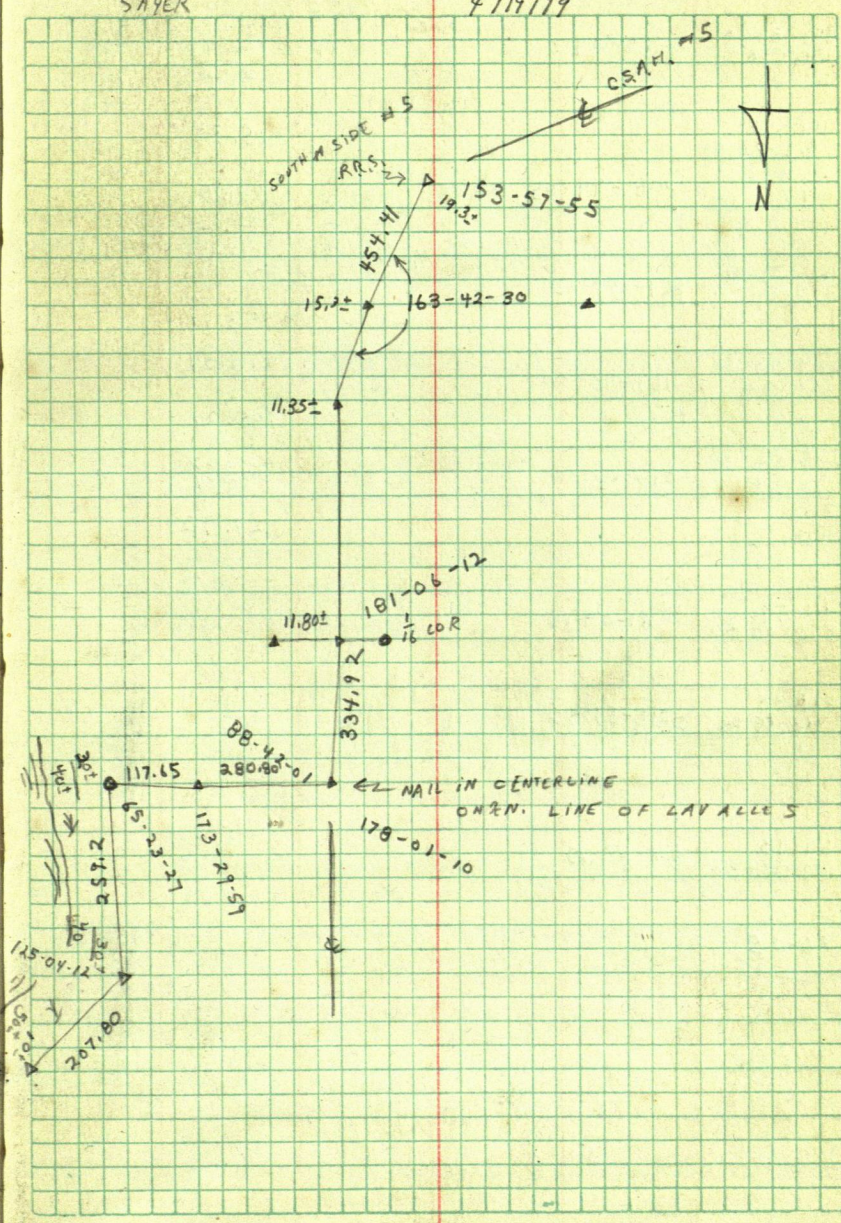 SAYER
4/19/79
C.S.A.H. #5
SOUTH SIDE #5
R.R.S.
153-57-55
19.3±
N
454.41
15.2±
163-42-30
11.35±
181-06-12
11.80±
1/16 COR
334.92
88-43-01
117.65
280.80
NAIL IN CENTERLINE
ON N. LINE OF LAVALLES
30±
40±
65-23-27
173-29-59
178-01-10
259.2
40
30±
125-04-12
207.80